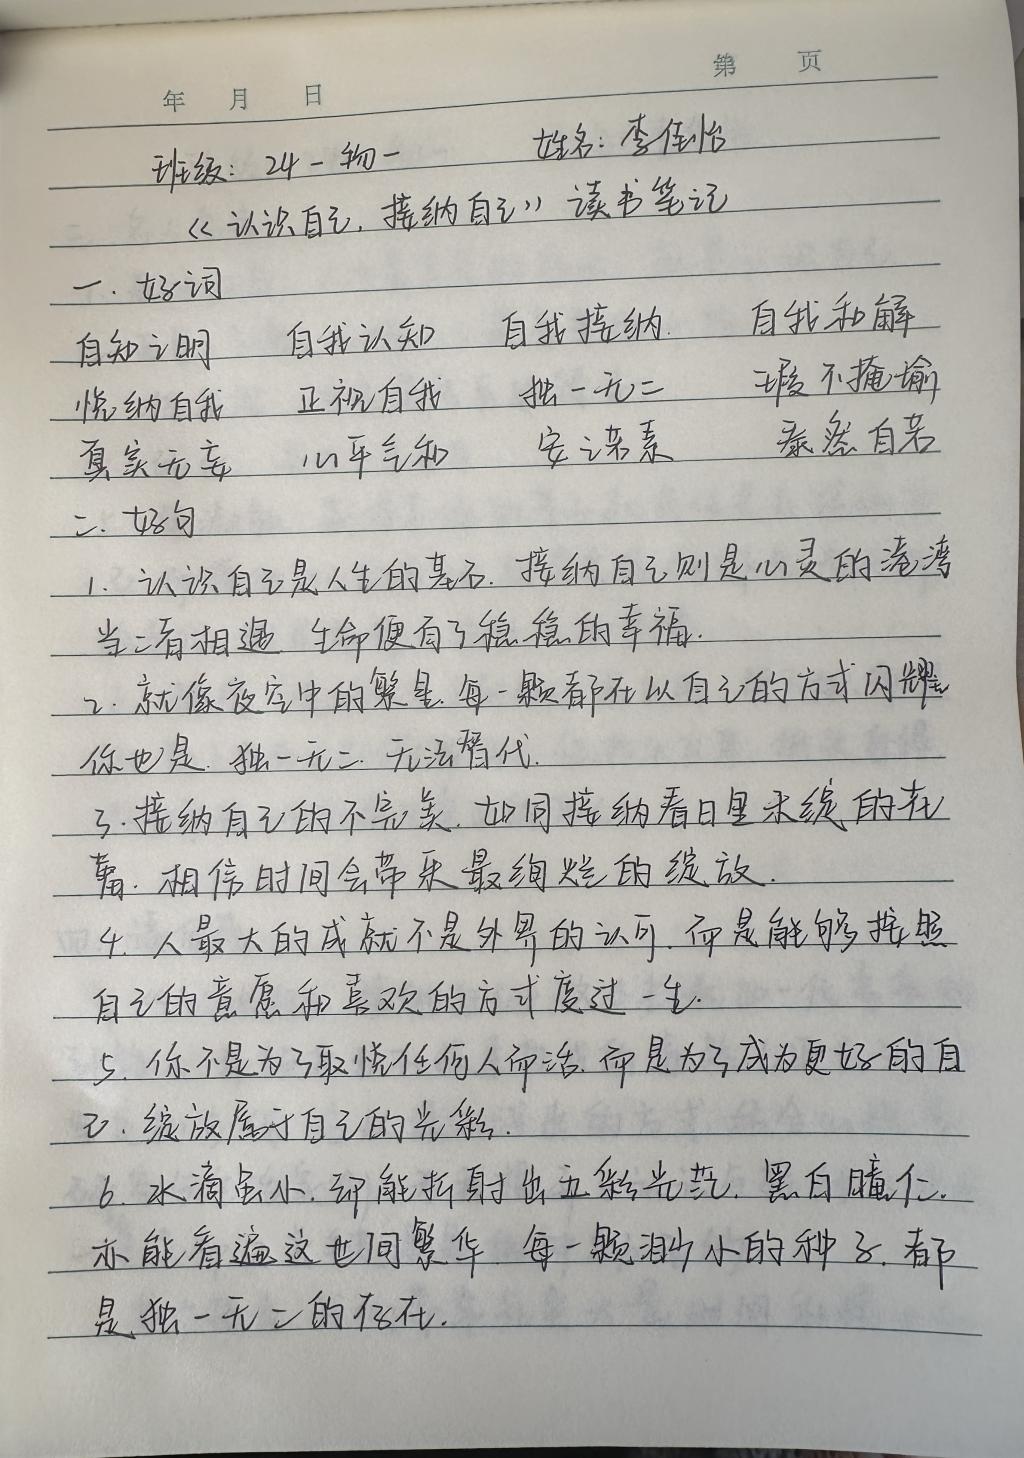 年 月 日 第 页
班级: 24-物一 姓名: 李佳怡
《认识自己,接纳自己》读书笔记
一. 好词
自知之明 自我认知 自我接纳. 自我和解
悦纳自我 正视自我 独一无二 瑕不掩瑜
真实无妄 心平气和 安之若素 泰然自若
二. 好句
1. 认识自己是人生的基石. 接纳自己则是心灵的港湾
当二者相遇 生命便有了稳稳的幸福.
2. 就像夜空中的繁星. 每一颗都在以自己的方式闪耀
你也是. 独一无二. 无法替代.
3. 接纳自己的不完美. 如同接纳春日里未绽的花
蕾. 相信时间会带来最绚烂的绽放.
4. 人最大的成就不是外界的认可. 而是能够按照
自己的意愿和喜欢的方式度过一生.
5. 你不是为了取悦任何人而活. 而是为了成为更好的自
己. 绽放属于自己的光彩.
6. 水滴虽小. 却能折射出五彩光芒. 黑白瞳仁.
亦能看遍这世间繁华. 每一颗渺小的种子. 都
是独一无二的存在.